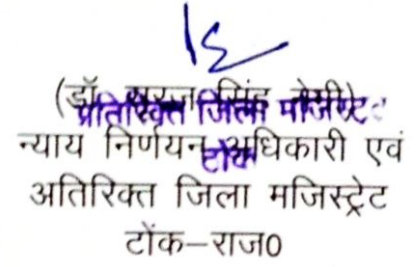 (डॉ. सूरज सिंह नेगी)
अतिरिक्त जिला मजिस्ट्रेट
न्याय निर्णयन अधिकारी एवं
टोंक
अतिरिक्त जिला मजिस्ट्रेट
टोंक–राज0